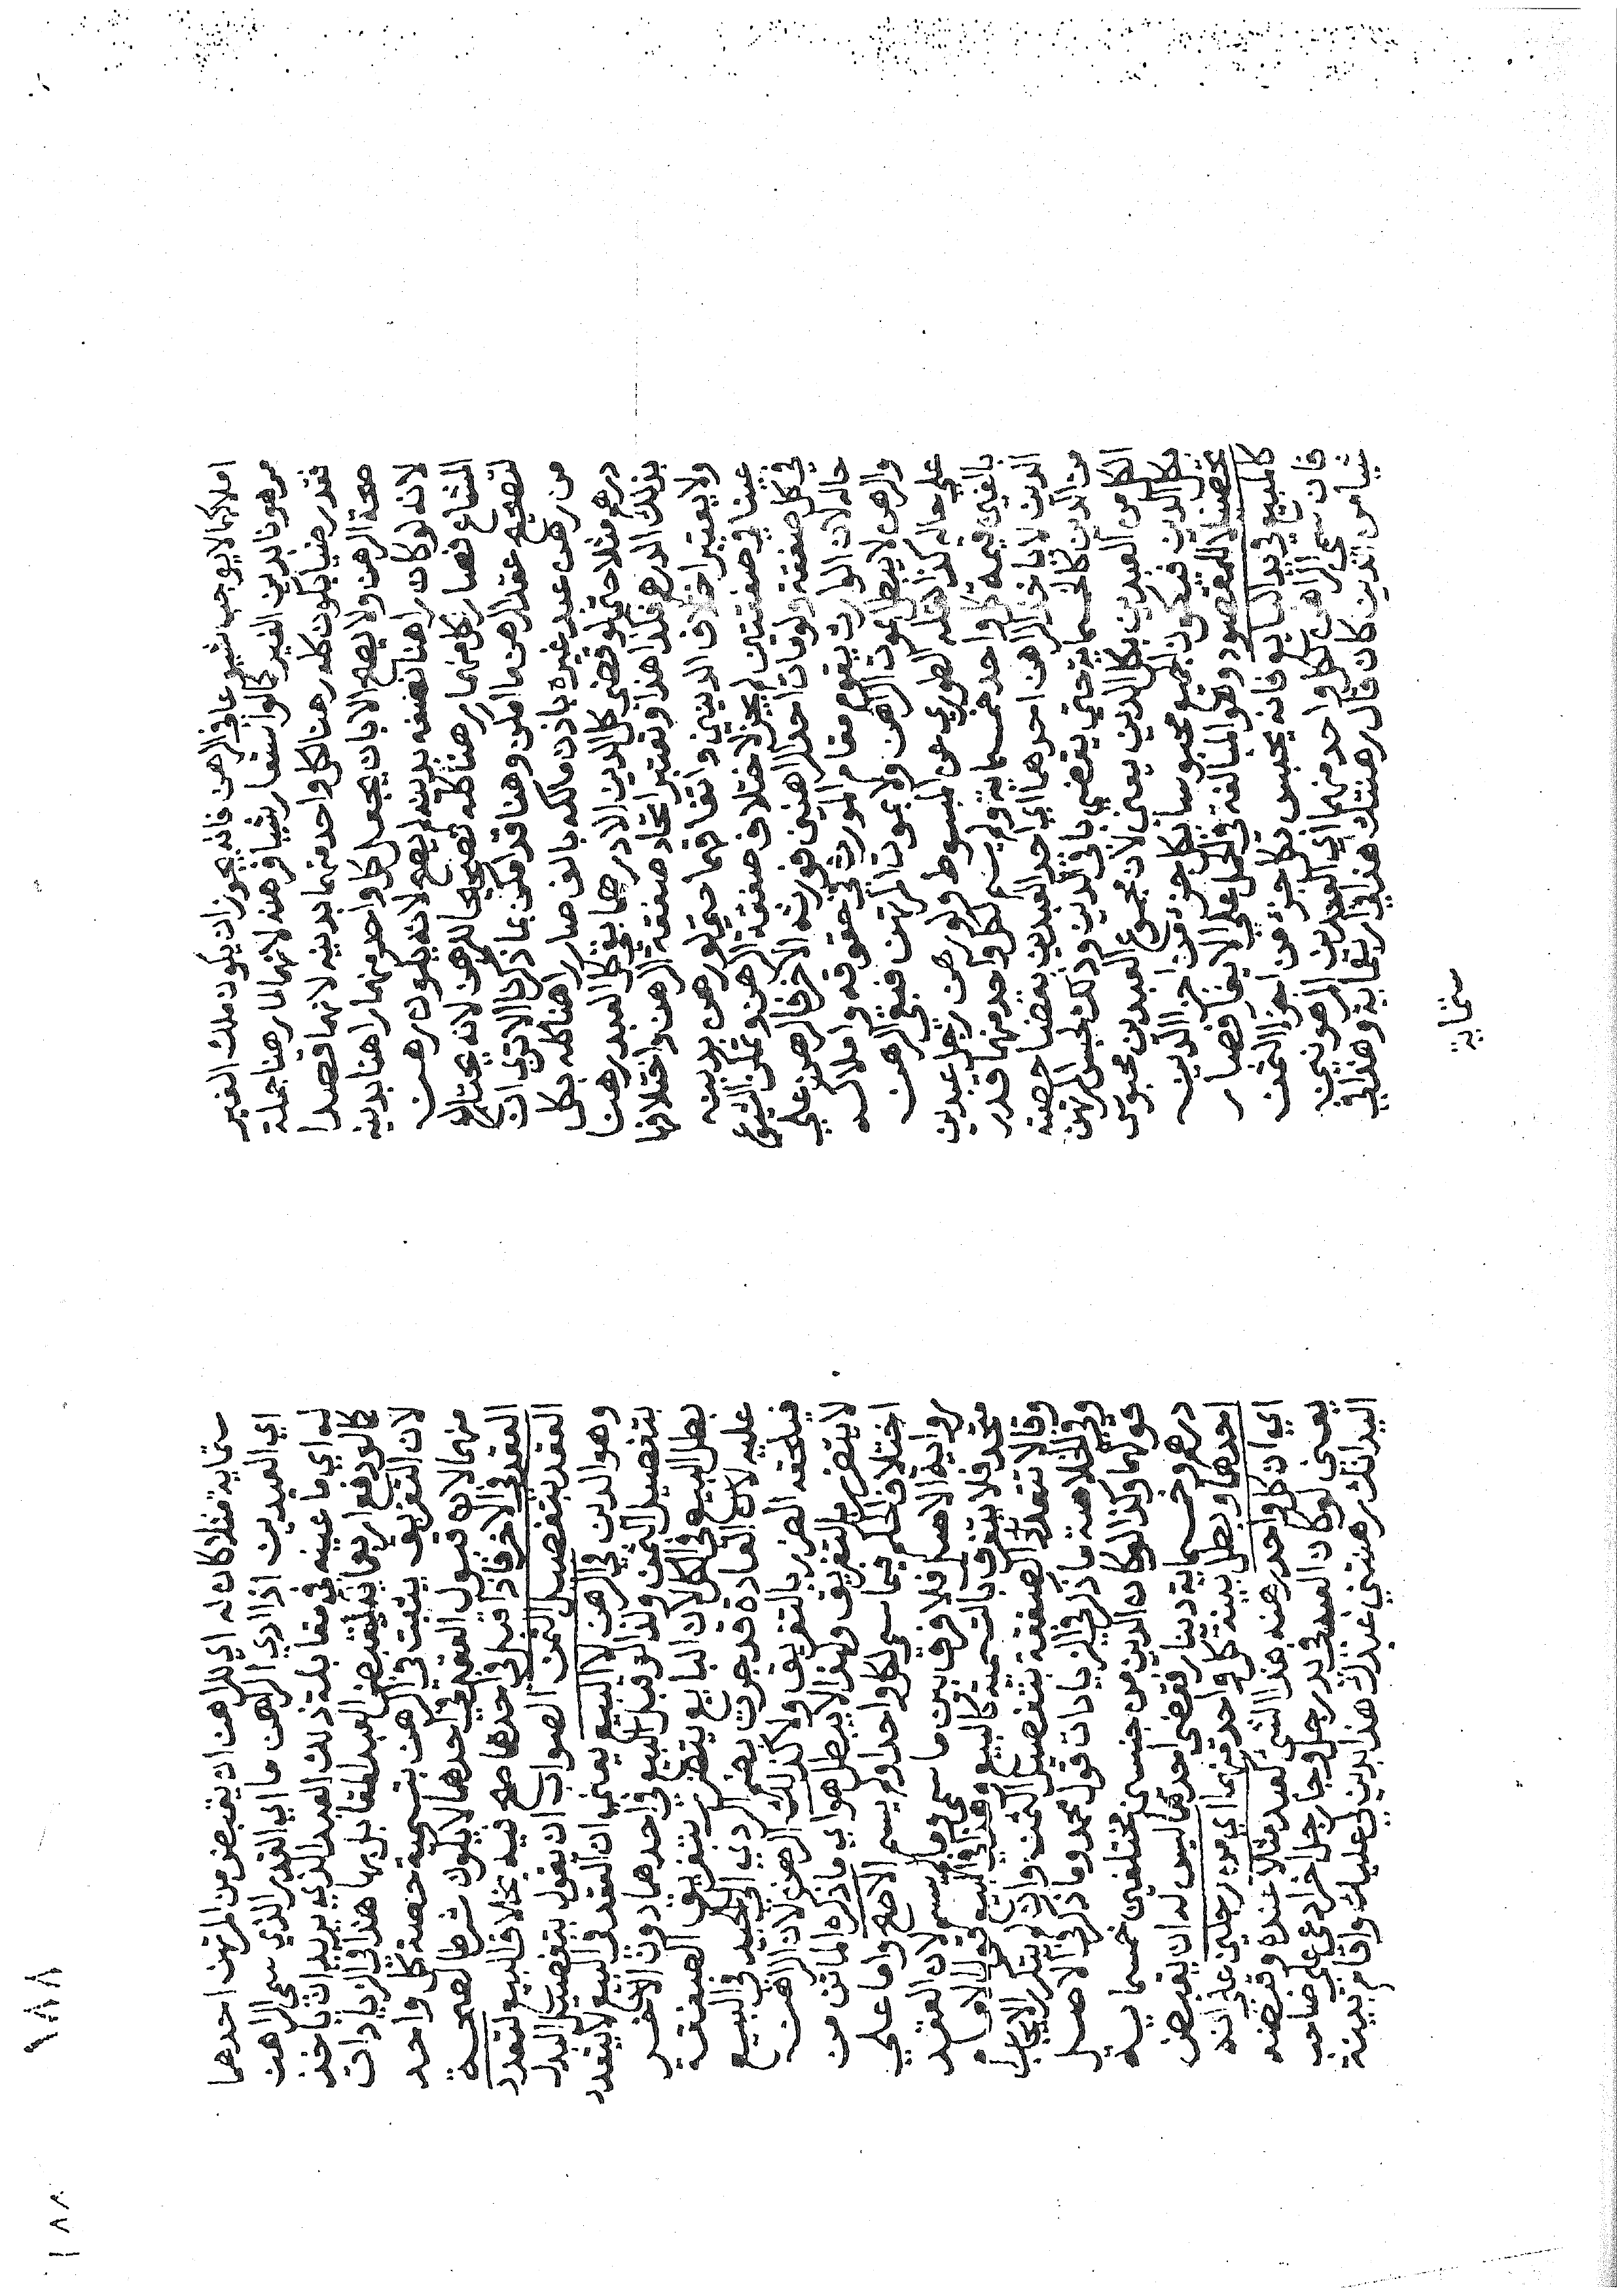 املاكهما لا يوجب شيوعا في الرهن فانه يجوز ان يكون ملك الغير
مرهونا بدين الغير كما لو استعار شيا فرهنه لانهما لما رهنا جملة
فقد رضيا بكون كله رهنا كل واحد منهما بدينه لانهما قصدا
صحة الرهن ولا يصح الا بان يجعل كل واحد منهما راهنا بدينه
لانه لو كان راهنا نصفه بدينه لم يصح لانه يكون رهن
المشاع فصار كل منهما رهنا كله تصحيحا للرهن لانه يحتاج
لتصحيح عقد الرهن ما امكن وهنا قد امكن بما ذكرنا الا تري ان
من رهن عبد غيره باذن مالكه بالف صار راهنا كله بكل
درهم مثلا حتي لو قضي كل الدين الا درهما بقي كل العبد رهنا
بذلك الدرهم فكذا هذا وتعتبر اتحاد صفقة الرهن واختلافها
ولا يعتبر اختلاف الدينين واتفاقهما حتي لو رهن بدينه
عينا في صفقتين لم يجز لاختلاف صفقة الرهن وتمكن الشيوع
في كل صفقة ولو مات احد الراهنين فورثه الاخر فالرهن علي
حاله لان الوارث يقوم مقام المورث في حقوقه واملاكه
والرهن لا يبطل بموت الراهن ولا بموت المرتهن فبقي الرهن
علي حاله كذا نقله الطوري عن المبسوط ولو رهن رجل عبدين
بالف قيمة كل واحد خمسماية ولم يسم لكل واحد منهما قدر
الدين لا ياخذ الراهن احدهما اي احد العبدين بقضا حصته
من الدين كالخمسماية حتي يقضي باقي الدين وذلك لحبس المرتهن
الكل من العبدين بكل الدين يعني لان مجموع العبدين محبوس
بكل الدين فيكون المجموع محبوسا بكل جزء من اجزا الدين
تحصيلا للمقصود وهو المبالغة في الحمل علي الايفا فصار
كالمبيع في يد البايع فانه يحبس بكل جزء من اجزا الثمن
فان سمي الراهن لكل واحد منهما اي العبدين المرهونين
شيا من الدين كان قال رهنتك هذا في اربعماية وهذا في
ستماية
ستماية مثلا كان له اي للراهن ان يقبض من المرتهن احدهما
اي العبدين اذا ادي الراهن ما اي القدر الذي سمي الراهن
له اي ما عينه في مقابلة ذلك العبد الذي يريد ان ياخذه
كما لو دفع اربعماية ليقبض العبد المقابل بها هذا في الزيادات
لان التفريق يثبت في الرهن بتسمية حصة كل واحد
منهما لان قبول العقد في احدهما لا يكون شرطا لصحة
العقد في الاخر فاذا قبل في احدهما صح فيه بخلاف البيع لتعدد
العقد بتفصيل الثمن الصواب ان يقول بتفصيل البدل
وهو الدين في الرهن لا البيع يعني ان العقد في البيع لا يتعدد
بتفصيل الثمن ولذا لو قبل البيع في احدهما دون الاخر
بطل البيع في الكل لان البايع يتضرر بتفريق الصفقة
عليه لان العادة قد جرت بضم الردي الي الجيد في البيع
فيلحقه الضرر بالتفريق ولا كذلك الرهن لان الراهن
لا يتضرر بالتفريق ولهذا لا يبطل هو اي ما ذكره الماتن من
اختلاف الحكم فيما سمي لكل واحد او لم يسم الاصح واما علي
رواية الاصل فلا فرق بين ما سمي وما لم يسم لان العقد
متحد فلا يتفرق بالتسمية كالبيع وهذا في البيع قول الامام
وقالا تتعدد الصفقة بتفصيل الثمن وان لم يتكرر الايجاب
وفي الخلاصة ما ذكر في الزيادات قول محمد وما ذكر في الاصل
قولهما وكذا لو كان الدين من جنسين مختلفين خمسماية
درهم وخمسماية دينار فقضي احدهما ليس له ان يقبض
احدهما وبطل بينة كل واحد منهما اي من رجلين علي انه
اي ان كل واحد رهنه هذا الشي لعبد مثلا عنده وقبضه
يعني لو كان العبد في يد رجل وجا رجل اخر ادعي علي صاحب
اليد انك رهنتني عبدك هذا بدين لي عليك واقام بينة
١٨٨
١٨٨